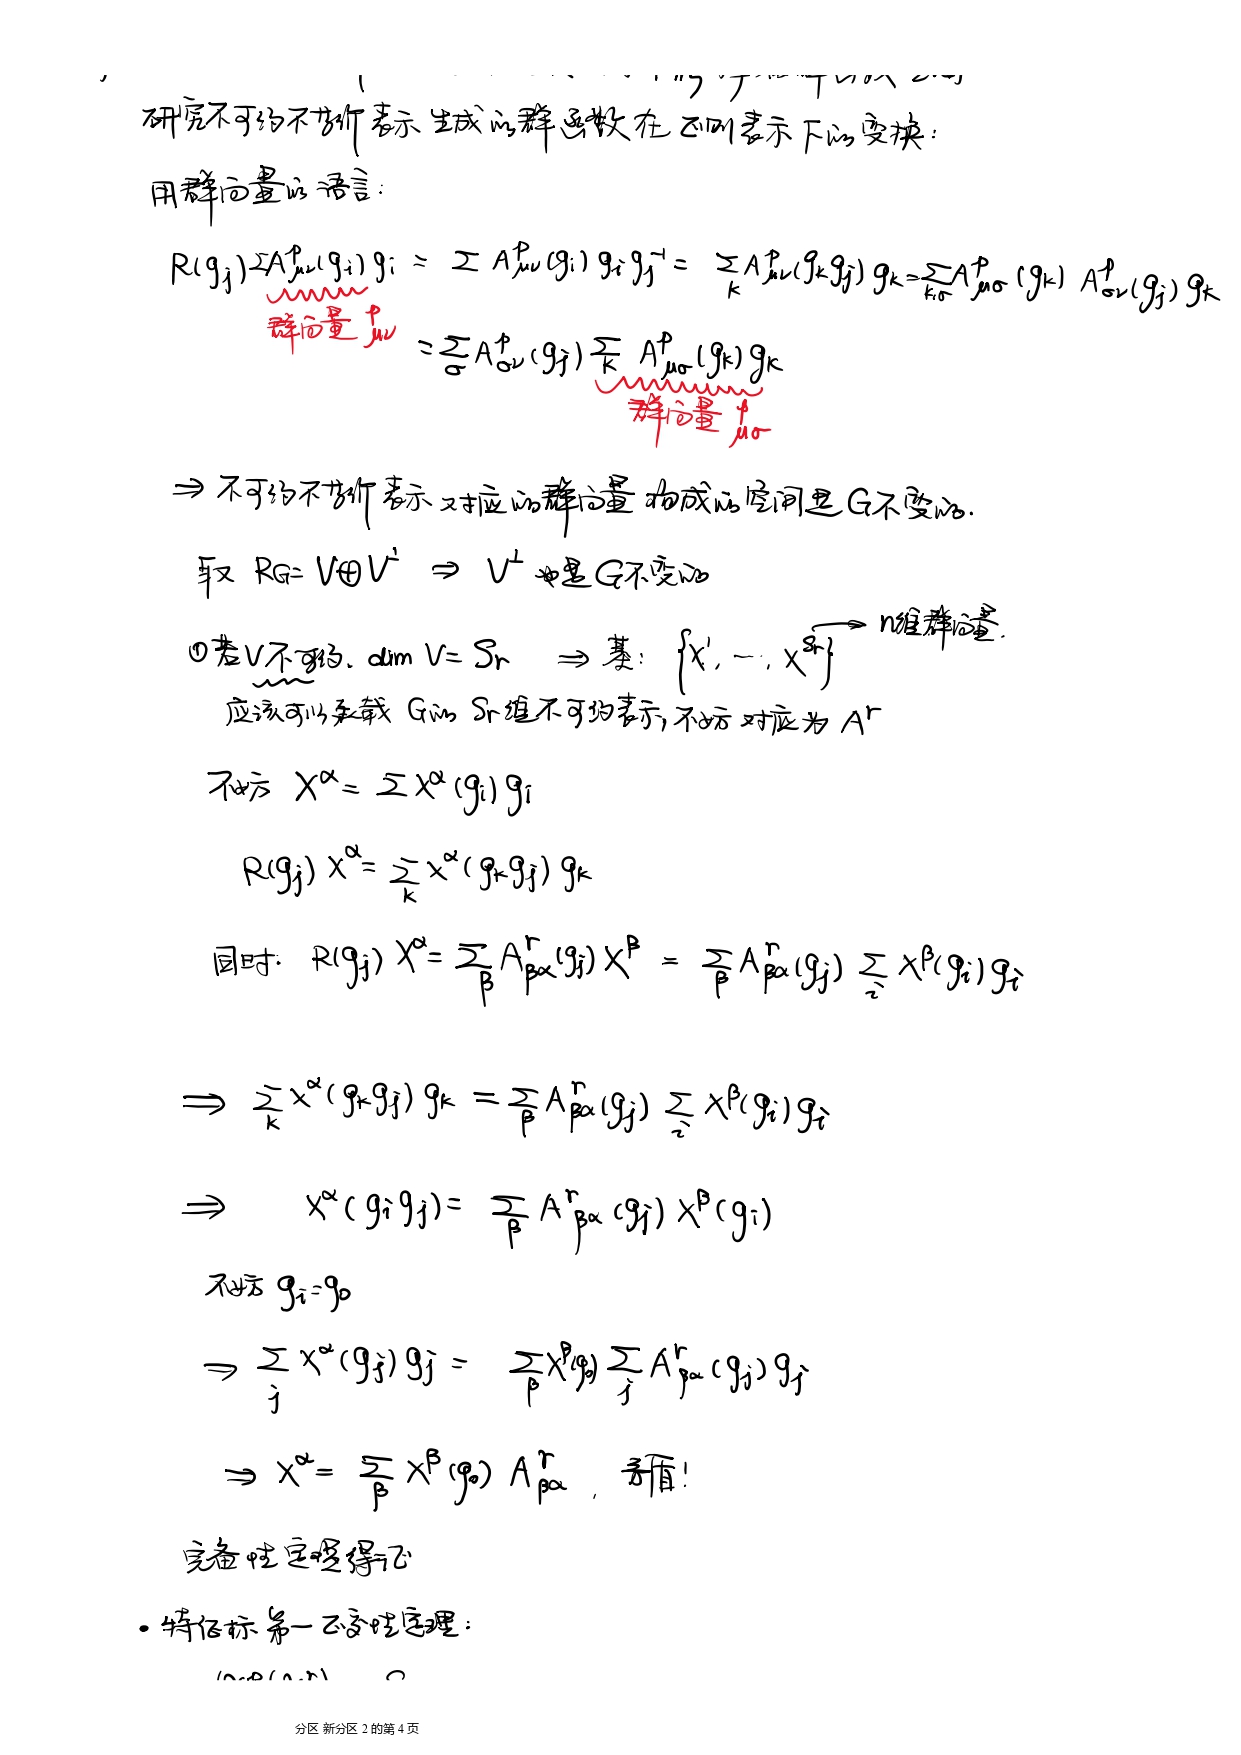 研究不可约不等价表示生成的群函数在正则表示下的变换:
用群向量的语言:
R(gⱼ) ΣA^p_{μν}(gᵢ) gᵢ = Σ A^p_{μν}(gᵢ) gᵢ gⱼ⁻¹ = Σ_k A^p_{μν}(g_k gⱼ) g_k = Σ_{k,σ} A^p_{μσ}(g_k) A^p_{σν}(gⱼ) g_k
群向量 ^p_{μν}
= Σ_σ A^p_{σν}(gⱼ) Σ_k A^p_{μσ}(g_k) g_k
群向量 ^p_{μσ}
⇒ 不可约不等价表示对应的群向量构成的空间是G不变的.
取 RG= V⊕V^⊥ ⇒ V^⊥ 也是G不变的
n维群向量.
①若V不可约. dim V= Sr ⇒ 基: {X¹, …, X^{Sr}} →
应该可以承载 G的 Sr维不可约表示, 不妨对应为 A^r
不妨 X^α = Σ X^α(gᵢ) gᵢ
R(gⱼ) X^α = Σ_k X^α(g_k gⱼ) g_k
同时: R(gⱼ) X^α = Σ_β A^r_{βα}(gⱼ) X^β = Σ_β A^r_{βα}(gⱼ) Σ_i X^β(gᵢ) gᵢ
⇒ Σ_k X^α(g_k gⱼ) g_k = Σ_β A^r_{βα}(gⱼ) Σ_i X^β(gᵢ) gᵢ
⇒ X^α(gᵢ gⱼ) = Σ_β A^r_{βα}(gⱼ) X^β(gᵢ)
不妨 gᵢ = g₀
⇒ Σ_j X^α(gⱼ) gⱼ = Σ_β X^β(g₀) Σ_j A^r_{βα}(gⱼ) gⱼ
⇒ X^α = Σ_β X^β(g₀) A^r_{βα} , 矛盾!
完备性定理得证
• 特征标第一正交性定理:
分区 新分区 2 的第 4 页